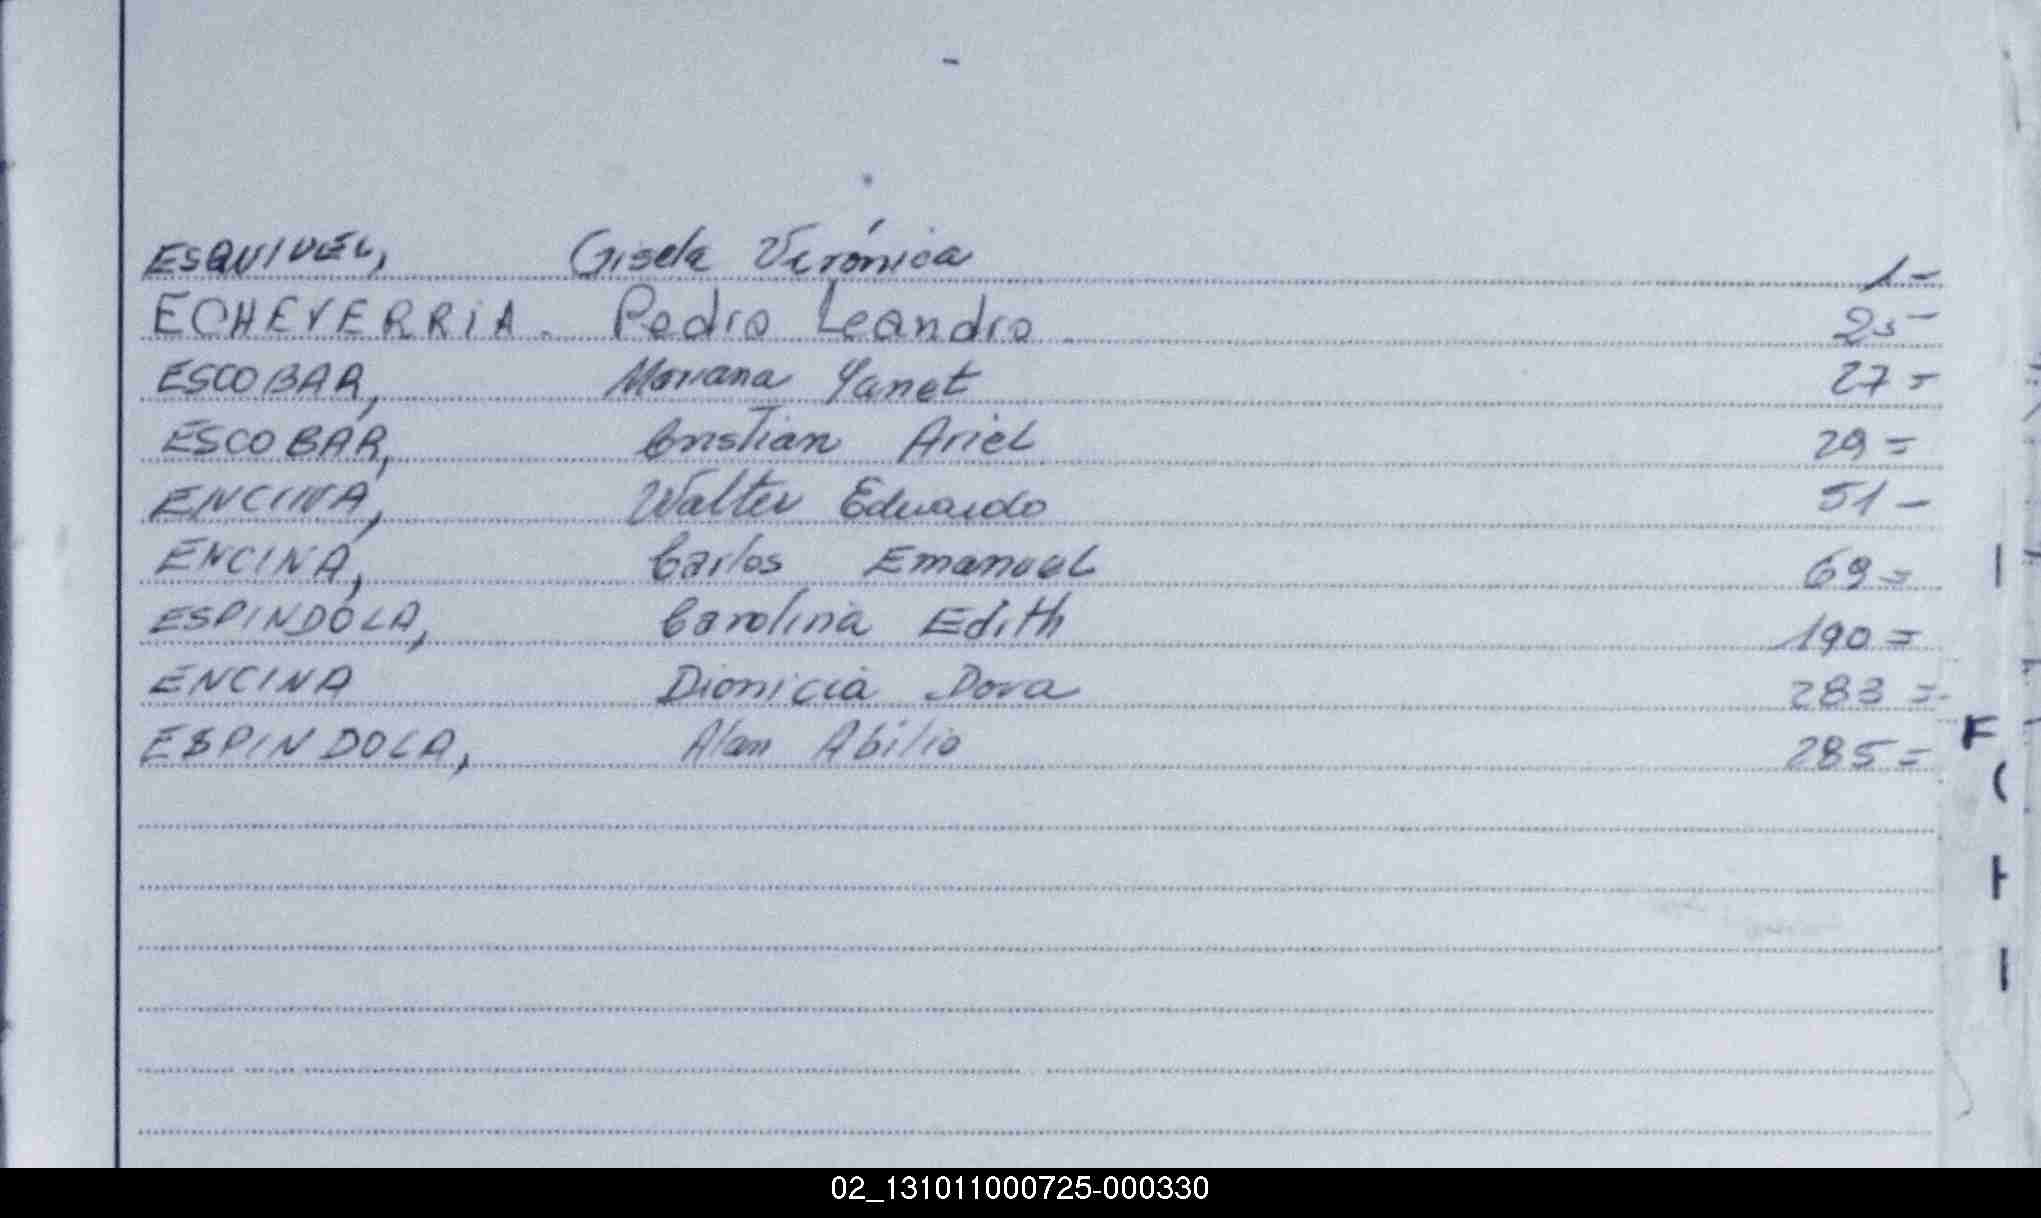 ESQUIVEL, Gisela Verónica 1-
ECHEVERRIA. Pedro Leandro 25-
ESCOBAR, Yanet 27=
ESCOBAR, Cristian Ariel 29=
ENCINA, Walter Eduardo 51-
ENCINA, Carlos Emanuel 69=
ESPINDOLA, Carolina Edith 190=
ENCINA Dionicia Dora 283=
ESPINDOLA, Alan Abilio 285=
F
02_131011000725-000330